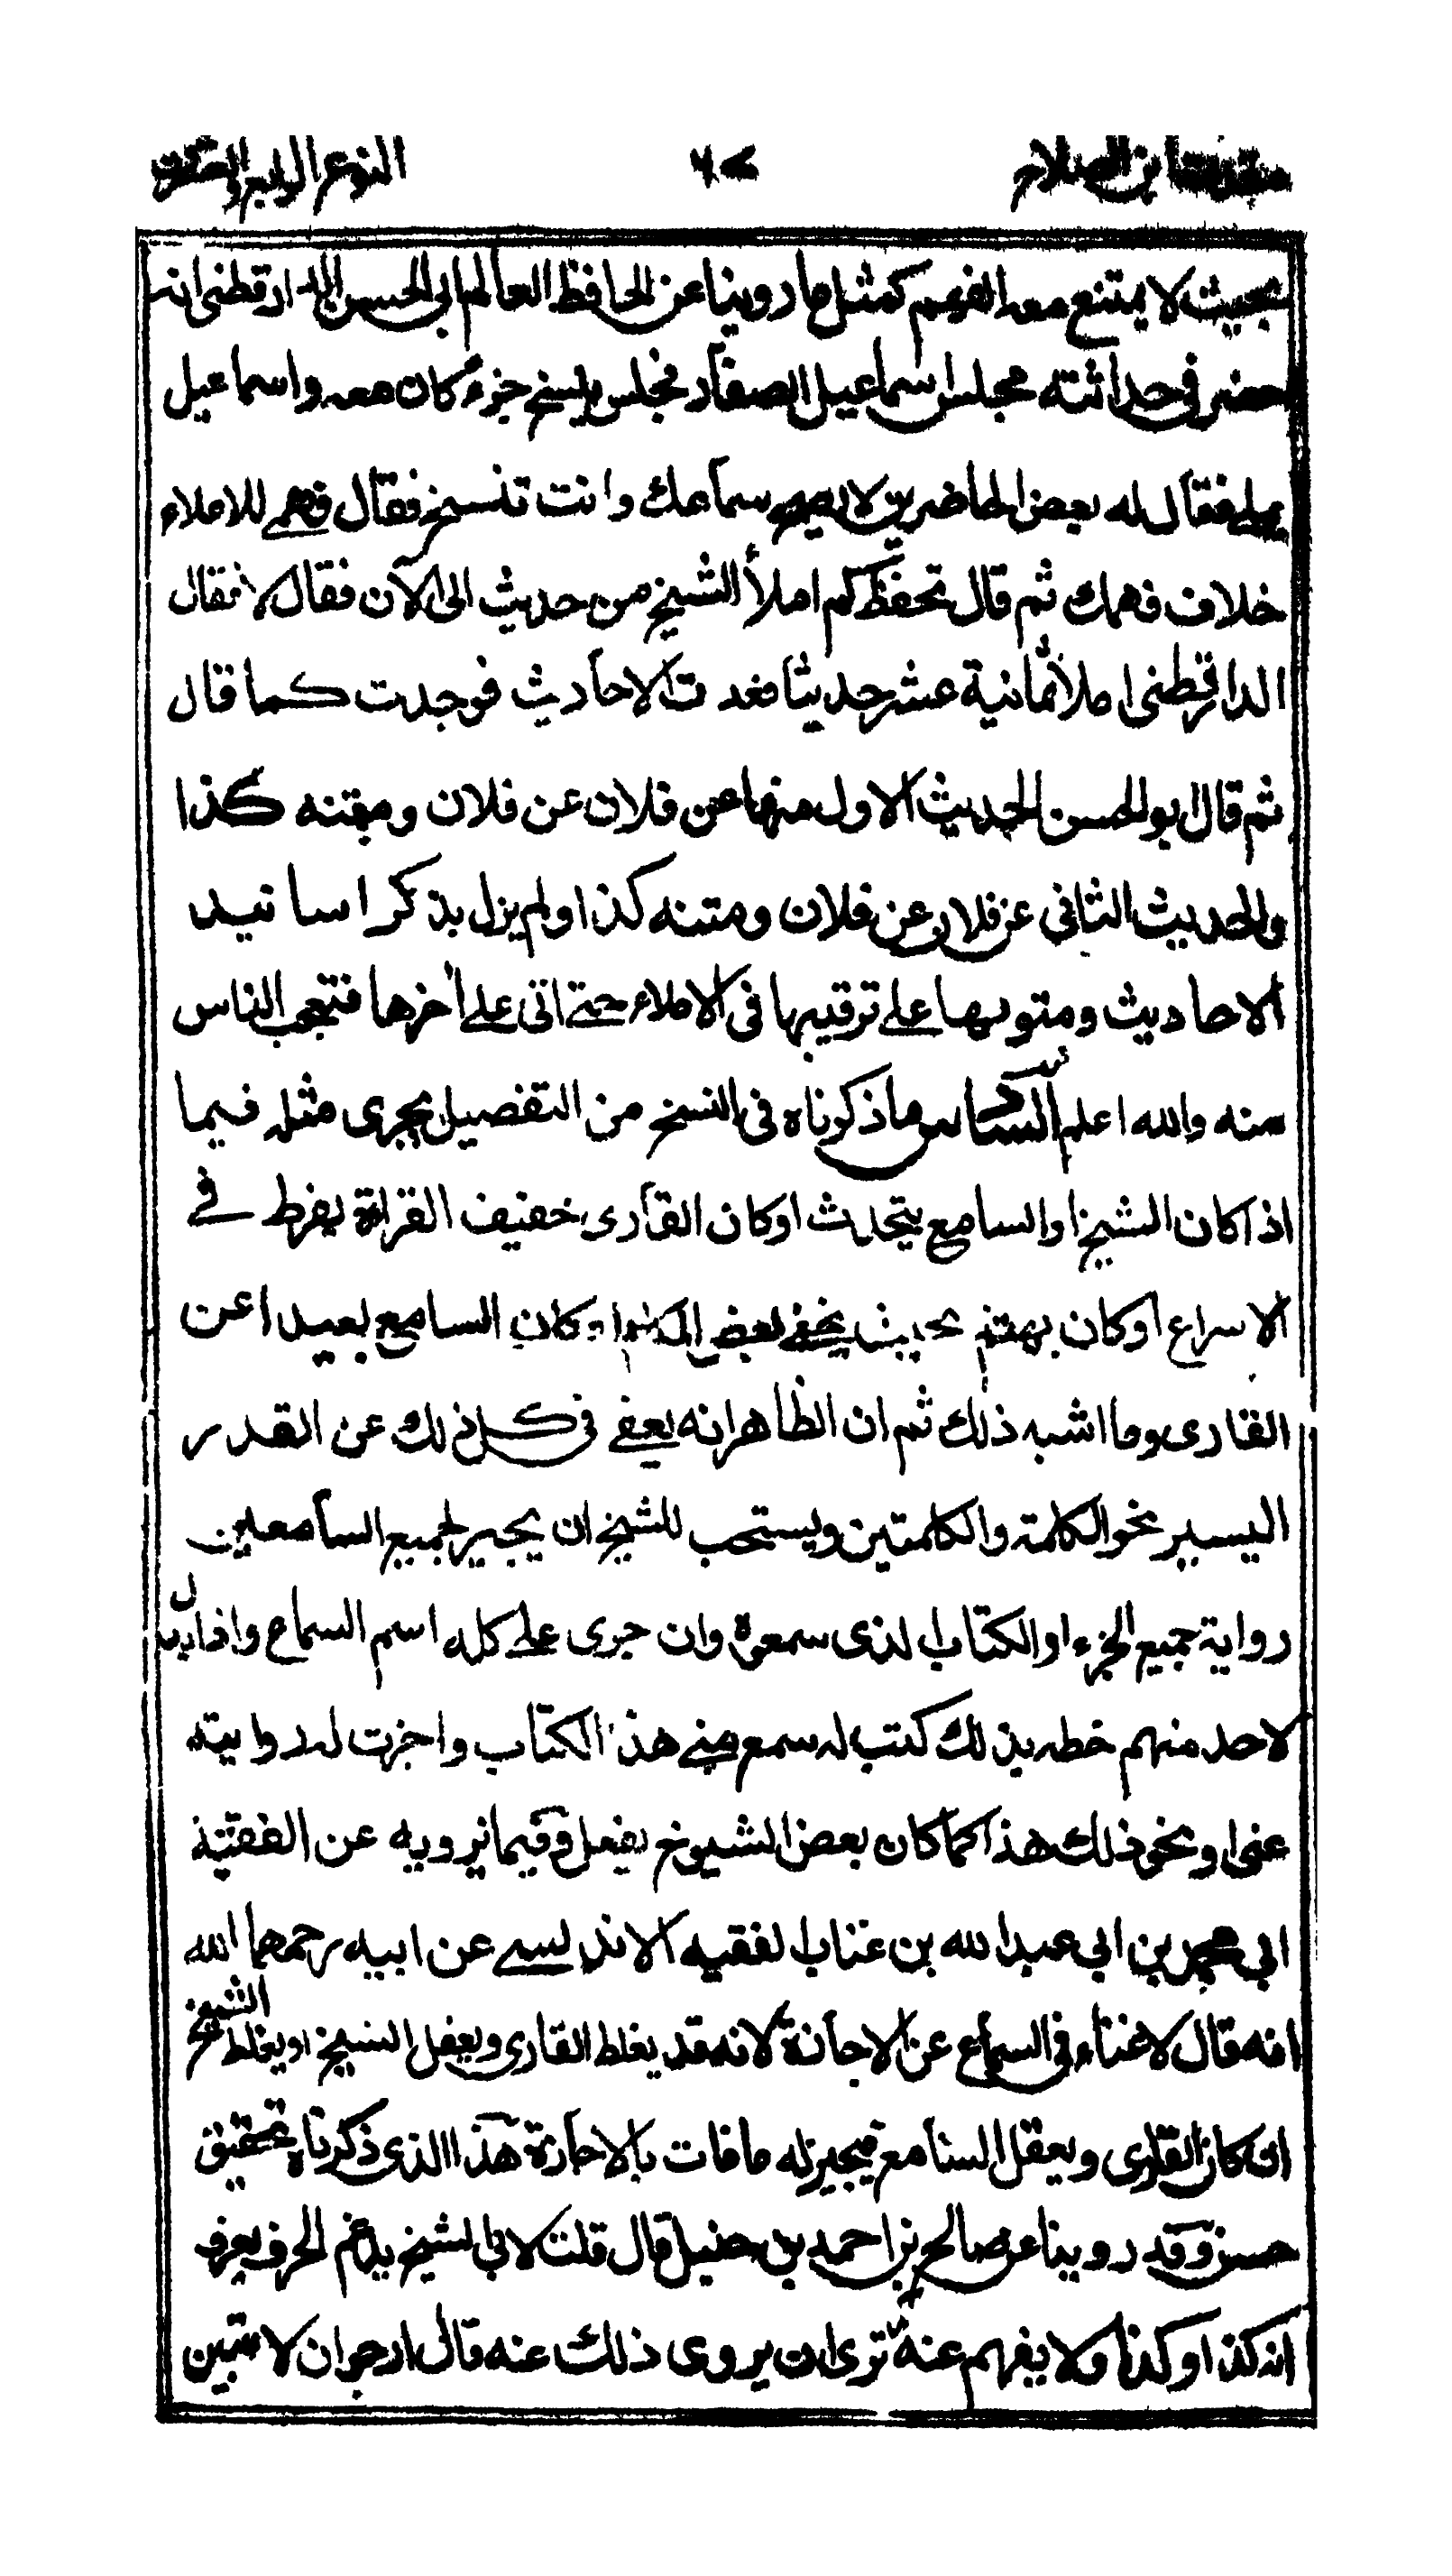 مقدمة ابن الصلاح ٦٧ النوع الرابع والعشرون
بحيث لا يمتنع معه الفهم كمثل ما روينا عن الحافظ العالم ابي الحسن الدارقطني انه
حضر في حداثته مجلس اسماعيل الصفار فجلس ينسخ جزء كان معه واسماعيل
يملي فقال له بعض الحاضرين لا يصح سماعك وانت تنسخ فقال فهمي للاملاء
خلاف فهمك ثم قال تحفظ كم املأ الشيخ من حديث الى الآن فقال لا فقال
الدارقطني املأ ثمانية عشر حديثا فعدت الاحاديث فوجدت كما قال
ثم قال ابو الحسن الحديث الاول منها عن فلان عن فلان ومتنه كذا
والحديث الثاني عن فلان عن فلان ومتنه كذا ولم يزل يذكر اسانيد
الاحاديث ومتونها على ترتيبها في الاملاء حتى اتى على آخرها فتعجب الناس
منه والله اعلم السادس ما ذكرناه في النسخ من التفصيل يجرى مثله فيما
اذا كان الشيخ او السامع يتحدث او كان القارى خفيف القراءة يفرط في
الاسراع او كان يهينم بحيث يخفى بعض الكلم او كان السامع بعيدا عن
القارى وما اشبه ذلك ثم ان الظاهر انه يعفى في كل ذلك عن القدر
اليسير نحو الكلمة والكلمتين ويستحب للشيخ ان يجيز لجميع السامعين
رواية جميع الجزء او الكتاب الذى سمعوه وان جرى على كله اسم السماع واذا بذل
لاحد منهم خطه بذلك كتب له سمع مني هذا الكتاب واجزت له روايته
عنى او نحو ذلك هذا كما كان بعض الشيوخ يفعل وفيما نرويه عن الفقيه
ابي محمد بن ابي عبد الله بن عتاب الفقيه الاندلسى عن ابيه رحمهما الله
انه قال لا غناء في السماع عن الاجازة لانه قد يغلط القارى ويغفل الشيخ او يغلط الشيخ
ان كان القارى ويغفل السامع فيجيز له ما فات بالاجازة هذا الذى ذكرناه تحقيق
حسن وقد روينا عن صالح بن احمد بن حنبل قال قلت لابي الشيخ يدغم الحرف يعرف
انه كذا وكذا ولا يفهم عنه ترى ان يروى ذلك عنه قال ارجو ان لا